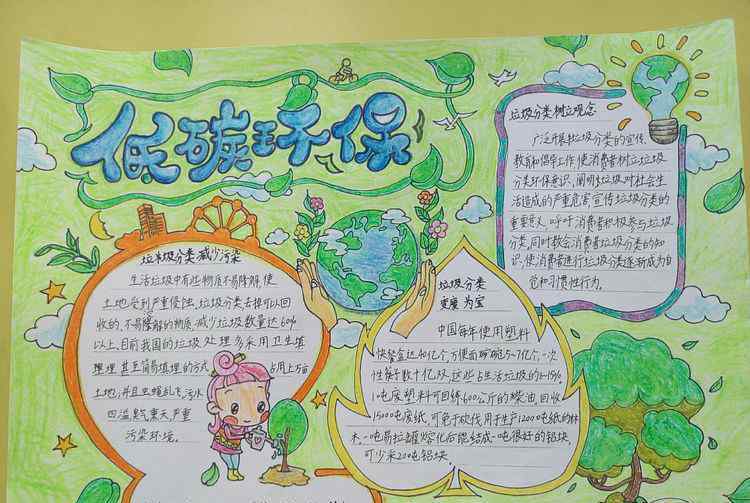 低碳环保
垃圾分类树立观念
广泛开展垃圾分类的宣传、
教育和倡导工作,使消费者树立垃圾
分类环保意识,阐明垃圾对社会生
活造成的严重危害,宣传垃圾分类的
重要意义,呼吁消费者积极参与垃圾
分类,同时教会消费者垃圾分类的知
识,使消费者进行垃圾分类逐渐成为自
觉和习惯性行为。
垃圾分类减少污染
生活垃圾中有些物质不易降解,使
土地受到严重侵蚀,垃圾分类去掉可以回
收的、不易降解的物质,减少垃圾数量达60%
以上,目前我国的垃圾处理多采用卫生填
埋理甚至简易填埋的方式 占用上万亩
土地,并且虫蝇乱飞,污水
四溢,臭气熏天,严重
污染环境。
垃圾分类
变废为宝
中国每年使用塑料
快餐盒达40亿个,方便面碗5-7亿个,一次
性筷子数十亿双,这些占生活垃圾的8-15%
1吨废塑料可回炼600公斤的柴油,回收
1500吨废纸,可免于砍伐用于生产1200吨纸的林
木,一吨易拉罐熔化后能结成一吨很好的铝块,
可少采20吨铝块。